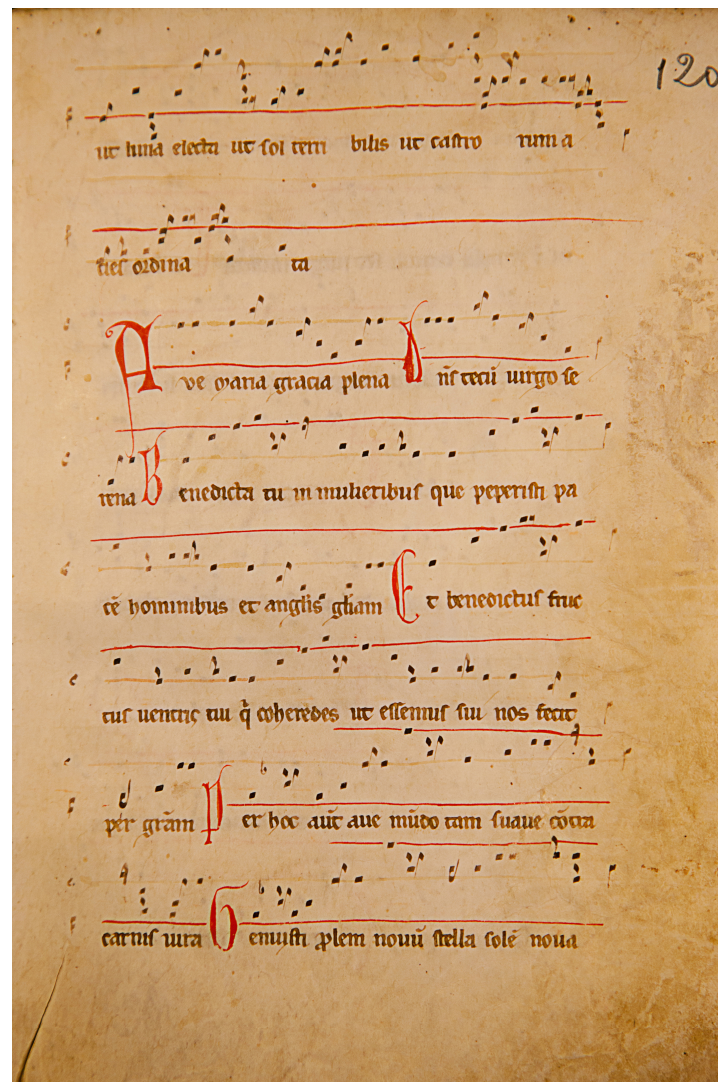 120
ut luna electa ut sol terri bilis ut castro rum a
ties ordina ta
Ave maria gracia plena Dn̄s tecū uirgo se
rena Benedicta tu in mulieribus que peperisti pa
cē hominibus et angl̄is gl̄iam Et benedictus fruc
tus uentris tui q̄ coheredes ut essemus sui nos fecit
per grām Per hoc aūt aue mūdo tam suaue cōtra
carnis iura Genuisti ꝓlem nouū stella solē noua